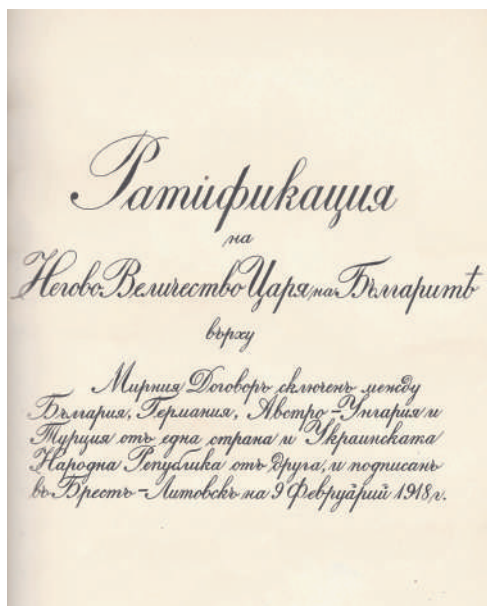 Ратификация
на
Негово Величество Царя на Българитѣ
върху
Мирния Договоръ сключенъ между
България, Германия, Австро-Унгария и
Турция отъ една страна и Украинската
Народна Република отъ друга, и подписанъ
въ Брестъ-Литовскъ на 9 Февруарий 1918 г.